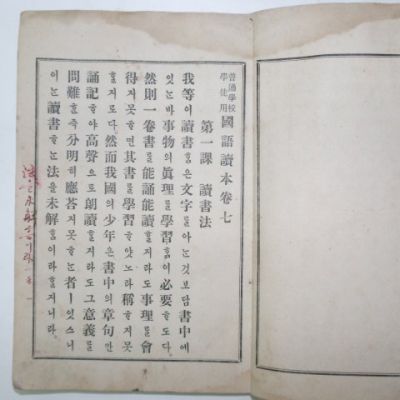 普通學校
學徒用 國語讀本卷七
第一課 讀書法
我等이讀書ᄒᆞᆷ은文字를아ᄂᆞᆫ것보담書中에
잇ᄂᆞᆫ바事物의眞理를學習ᄒᆞᆷ이必要ᄒᆞ도다
然則一卷書를能誦能讀ᄒᆞᆯ지라도事理를會
得지못ᄒᆞ면其書를學習ᄒᆞ얏노라稱ᄒᆞ지못
ᄒᆞᆯ지로다然而我國의少年은書中의章句만
誦記ᄒᆞ야高聲으로朗讀ᄒᆞᆯ지라도그意義를
問難ᄒᆞᆫ즉分明히應答지못ᄒᆞᄂᆞᆫ者ㅣ잇스니
이ᄂᆞᆫ讀書ᄒᆞᄂᆞᆫ法을未解ᄒᆞᆷ이라ᄒᆞᆯ지니라